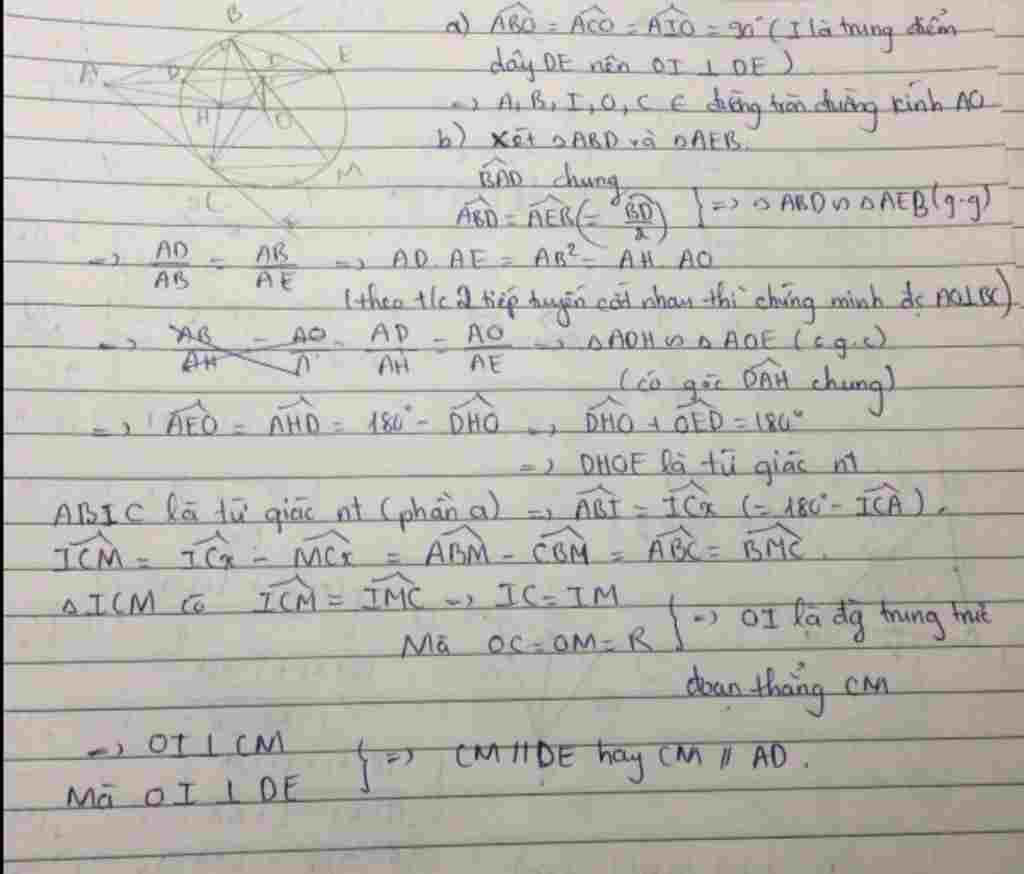 B
A D I E
H O
C M
x
a) ABO = ACO = AIO = 90° (I là trung điểm
dây DE nên OI ⊥ DE)
=> A, B, I, O, C ∈ đường tròn đường kính AO
b) Xét △ABD và △AEB.
BAD chung
ABD = AEB (= BD/2) } => △ABD ∽ △AEB (g.g)
=> AD/AB = AB/AE => AD.AE = AB² = AH.AO
(theo t/c 2 tiếp tuyến cắt nhau thì chứng minh đc AO⊥BC)
=> AD/AH = AO/AE => △ADH ∽ △AOE (c.g.c)
(có góc DAH chung)
=> AEO = AHD = 180° - DHO => DHO + OED = 180°
=> DHOE là tứ giác nt
ABIC là tứ giác nt (phần a) => ABI = ICx (= 180° - ICA).
ICM = ICx - MCx = ABM - CBM = ABC = BMC.
△ICM có ICM = IMC => IC = IM
Mà OC = OM = R } => OI là đg trung trực
đoạn thẳng CM
=> OI ⊥ CM
Mà OI ⊥ DE } => CM // DE hay CM // AD.